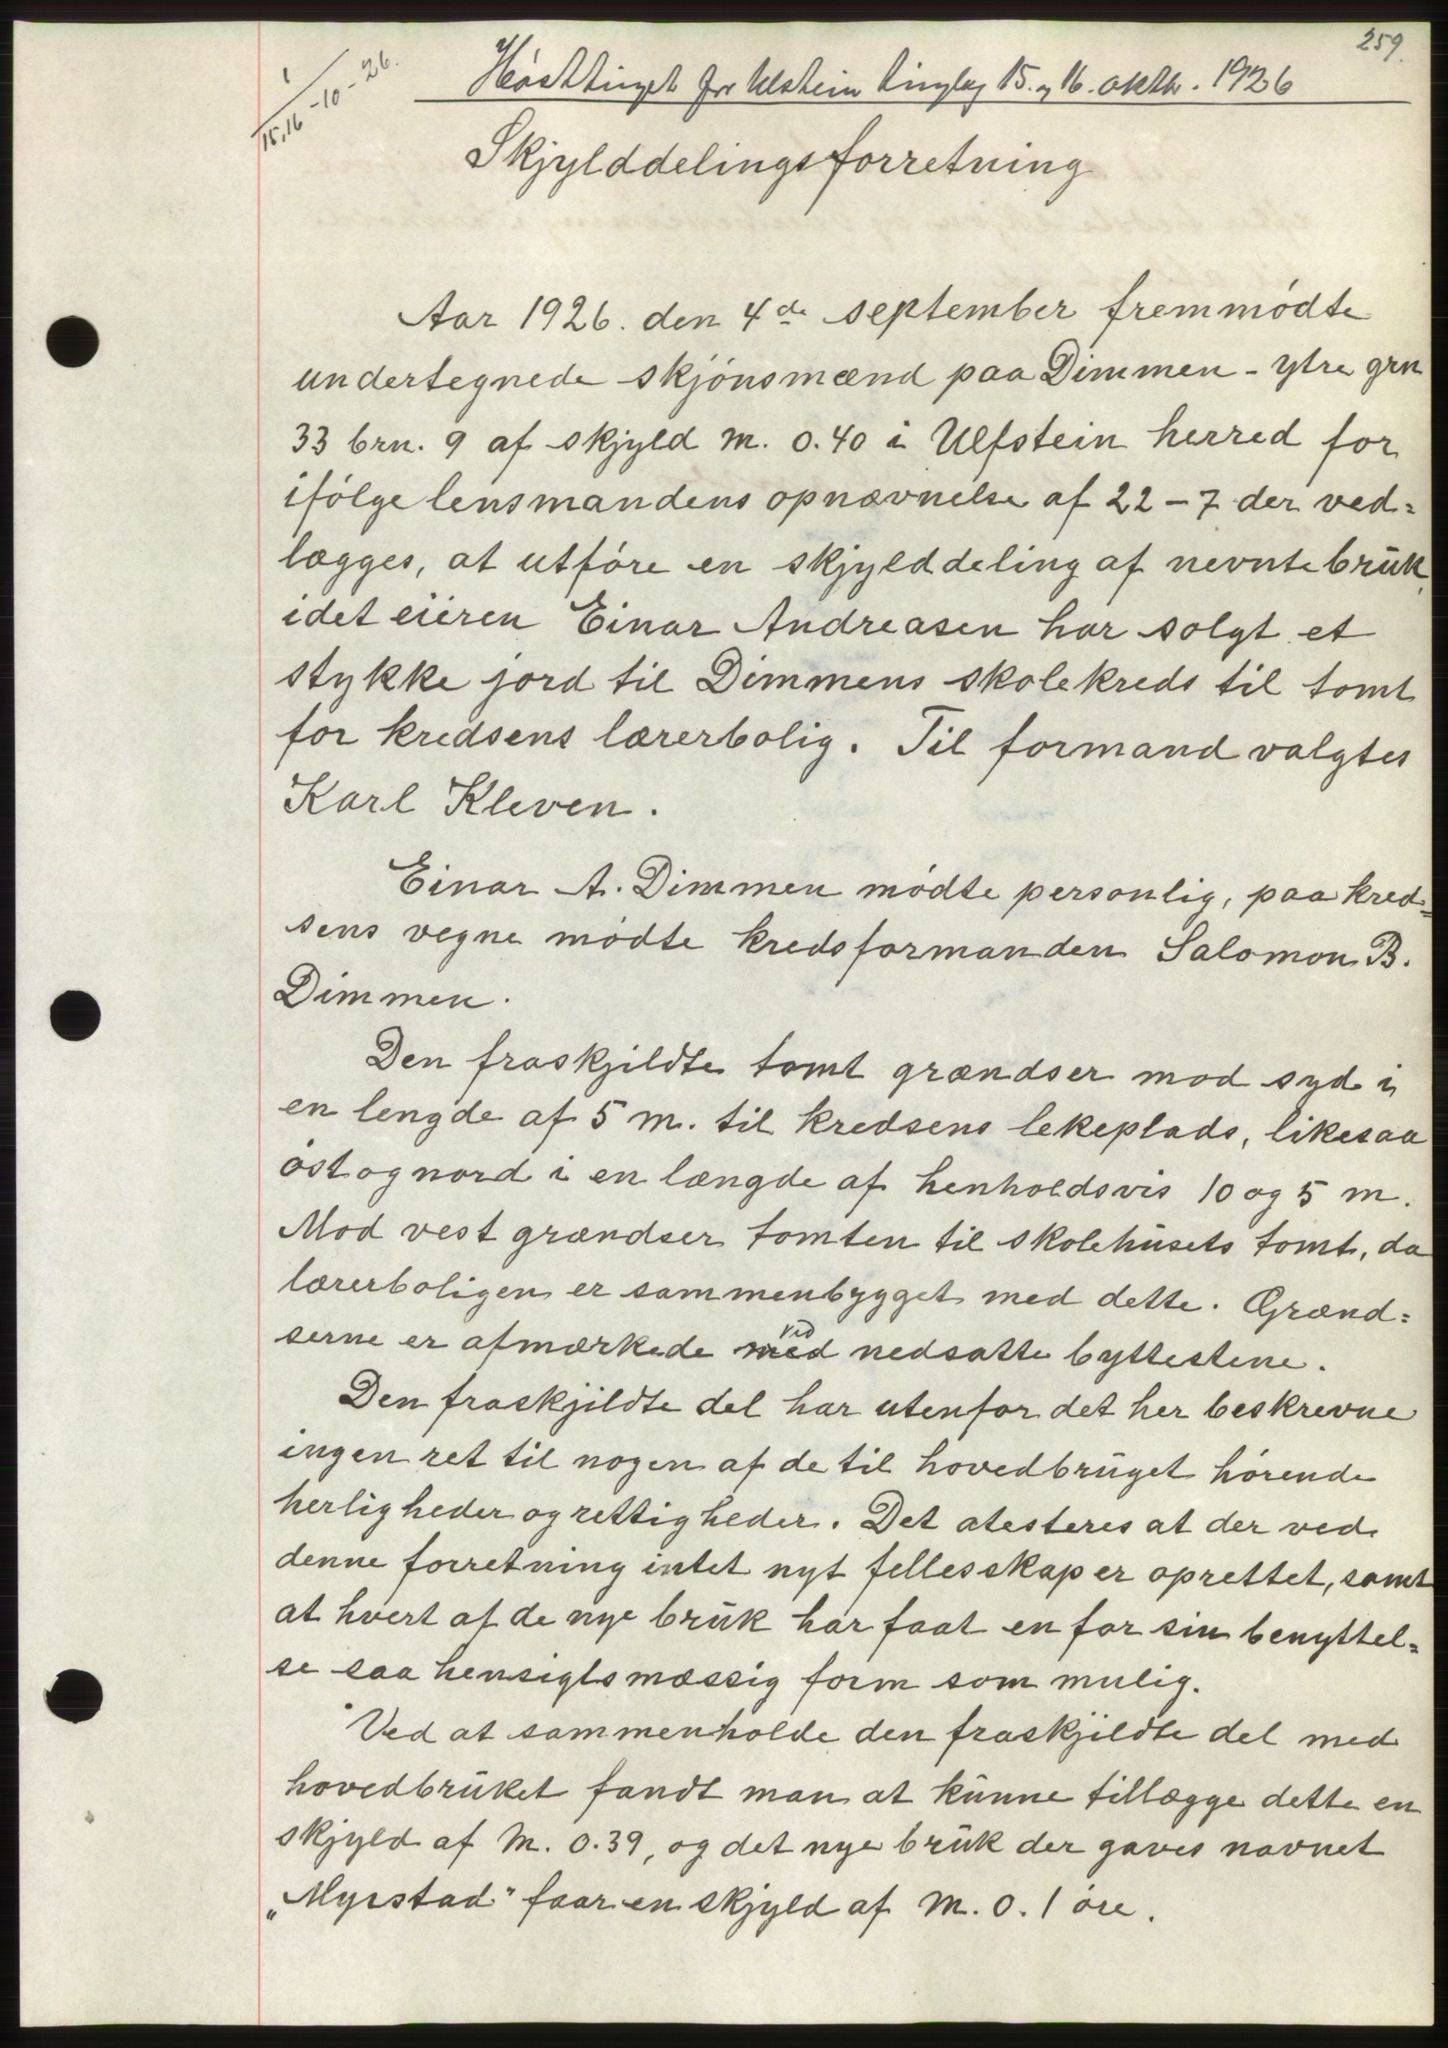 259.
1
15,16-10-26.
Høsttinget for Ulstein tinglag 15. og 16. oktbr. 1926
Skjylddelingsforretning
Aar 1926. den 4de september fremmødte
undertegnede skjönsmænd paa Dimmen-ytre grn
33 brn. 9 af skjyld m. 0.40 i Ulfstein herred for
ifölge lensmandens opnævnelse af 22-7 der ved=
lægges, at utföre en skjylddeling af nevnte bruk,
idet eieren Einar Andreasen har solgt et
stykke jord til Dimmens skolekreds til tomt
for kredsens lærerbolig. Til formand valgtes
Karl Kleven.
Einar A. Dimmen mødte personlig, paa kred=
sens vegne mødte kredsformanden Salomon B.
Dimmen.
Den fraskjildte tomt grændser mod syd i
en lengde af 5 m. til kredsens lekeplads, likesaa
öst og nord i en længde af henholdsvis 10 og 5 m.
Mod vest grændser tomten til skolehusets tomt, da
lærerboligen er sammenbygget med dette. Grænd=
serne er afmærkede med ved nedsatte byttestene.
Den fraskjildte del har utenfor det her beskrevne
ingen ret til nogen af de til hovedbruget hörende
herligheder og rettigheder. Det atesteres at der ved
denne forretning intet nyt fellesskap er oprettet, samt
at hvert af de nye bruk har faat en for sin benyttel=
se saa hensigtsmæssig form som mulig.
Ved at sammenholde den fraskjildte del med
hovedbruket fandt man at kunne tillægge dette en
skjyld af M. 0.39, og det nye bruk der gaves navnet
„Myrstad" faar en skjyld af M. 0.1 öre.